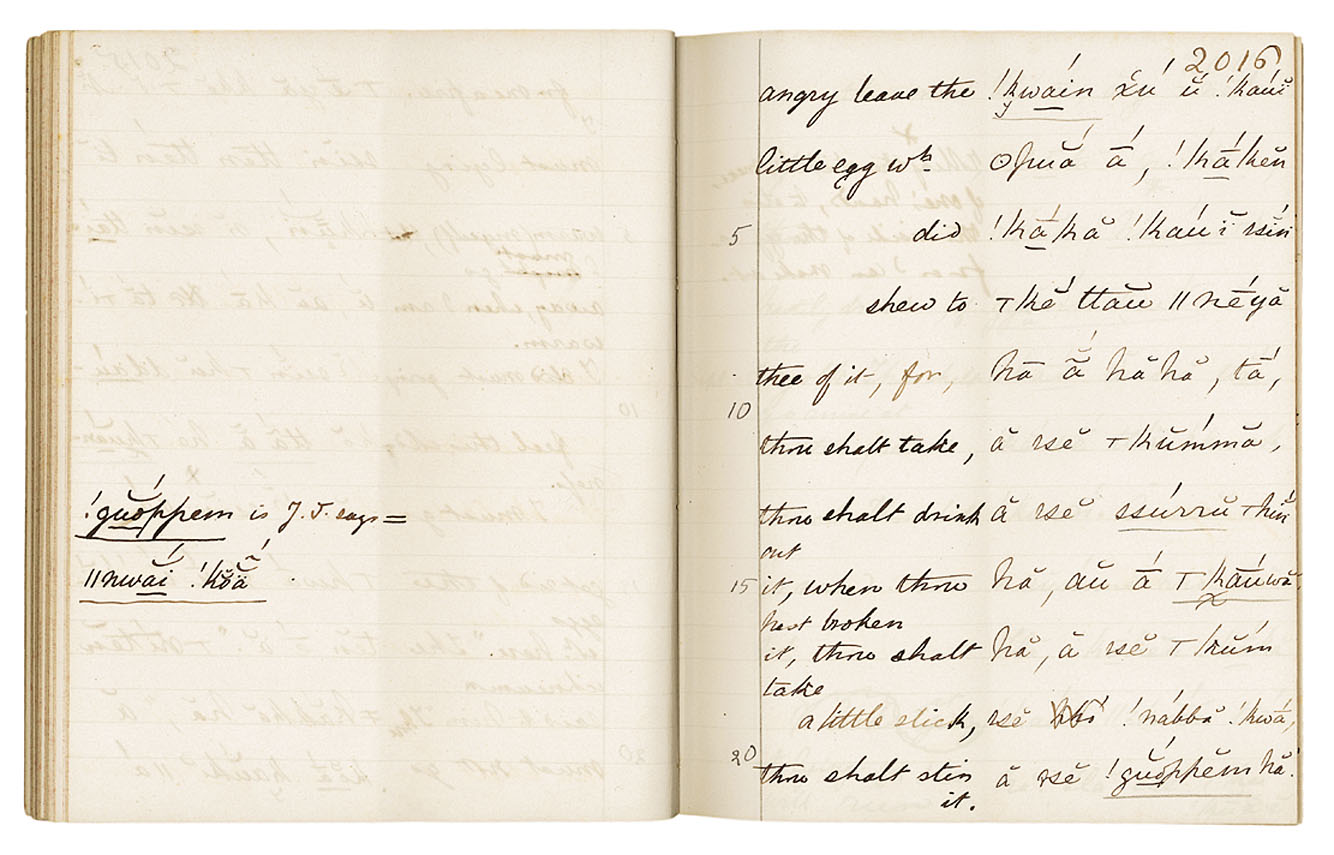 !gŭóppem is J.T. says =
||nwắi !kŏ̃ä
2016
angry leave the !kwáin x̌ú ŭ !kaúi
little egg wh. ʘpuắ ā́, !kā́kĕn
5 did !kā́kă !kaúĭ ssín
shew to ⊤kĕ́ ttăŭ ||nḗyă
thee of it, for, hā ắ hăhă, tā́,
10
thou shalt take, ā ssĕ ⊤kŭḿmă,
thou shalt drink ā ssĕ ssúrrŭ ⊤hĭń
out
15 it, when thou hă, aŭ ā́ ⊤kāúwă
hast broken
it, thou shalt hă, ā ssĕ ⊤kŭḿ
take
a little stick, ssĕ !nábbă !kwá,
20 thou shalt stir ā ssĕ !gŭóppĕm hă.
it.